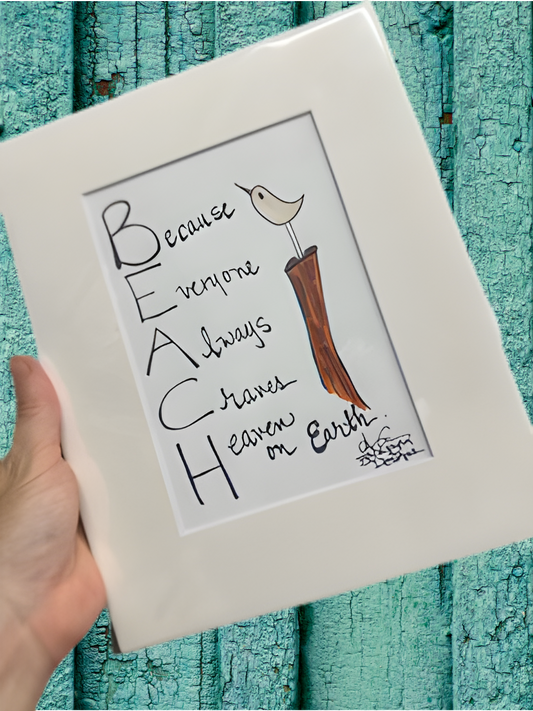 Because
Everyone
Always
Craves
Heaven
on Earth.